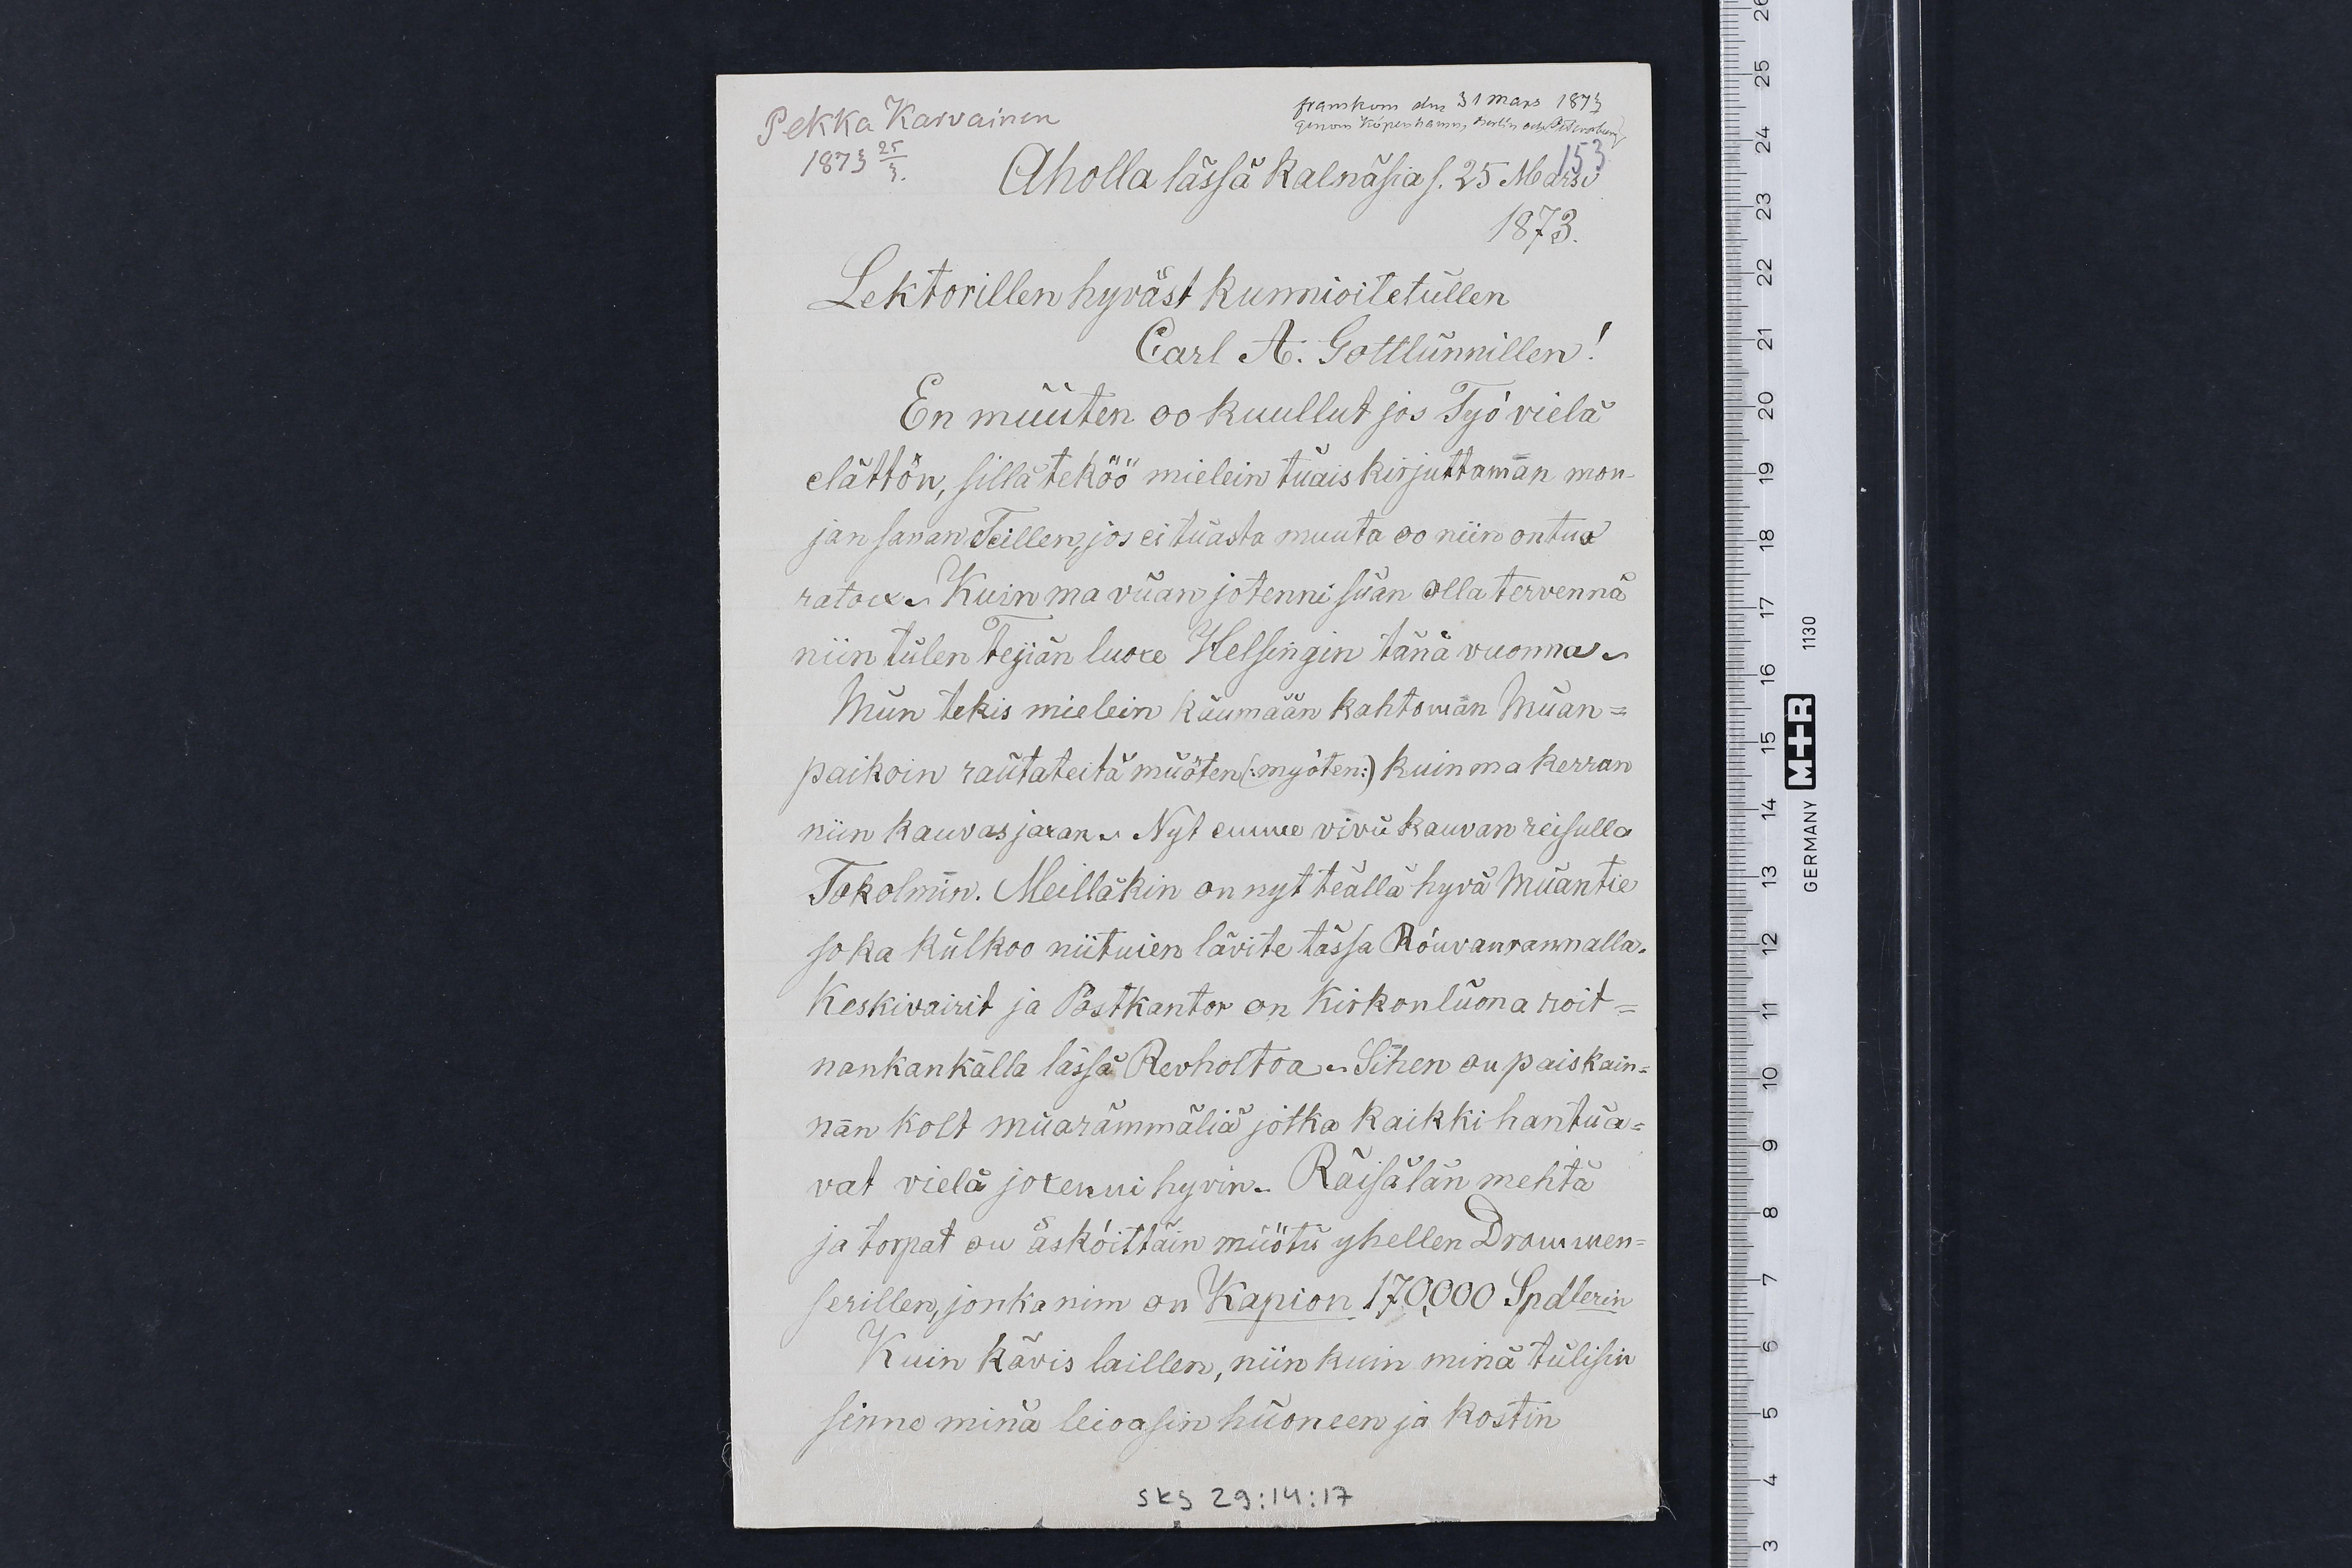 Pekka Karvainen
1873 25/3.
framkom den 31 mars 1873
genom Köpenhamn, Berlin och Petersburg
153
Aholla lässä Kalnäsias. 25 Marsi
1873.
Lektorillen hyväst kunnioitetullen
Carl A. Gottlunnillen!
En muuten oo kuullut jos Työ vielä
elättön, sillä teköö mielein tuais kirjuttamān mon-
jan sanan Teillen, jos ei tuasta muuta oo niin on tua
Kuin ma vuan jotenni suan olla tervennä
niin tulen Teijän luoxe Helsingin tänä vuonna
Mun tekis mielein käumään kahtomān Muan=
paikoin rautateitä muöten (:myöten:) kuin ma kerran
niin kauvas jaxan Nyt emme vivü kauvan reisulla
Tokolmīn. Meilläkin on nyt teällä hyvä Muantie
joka kulkoo niituien lävite tässä Röuvanrannalla.
Keskivairit ja Postkantor on Kirkonluona roit=
nankankālla lässä Revholtoa Siihen on paiskain=
nān kolt muarämmäliä jotka kaikki hantua=
vat vielä jotenni hyvin Räisälän mehtä
ja torpat on äsköittäin müötü yhellen Drammen=
serillen, jonka nim on Kapion 170,000 Spdlerin
Kuin kävis laillen, niin kuin minä tulisin
sinne minä leioasin huoneen ja kostin
SKS 29:14:17
26
25
24
23
22
21
20
19
18
17
16
15
14
13
12
11
10
9
8
7
6
5
4
3
GERMANY M+R 1130